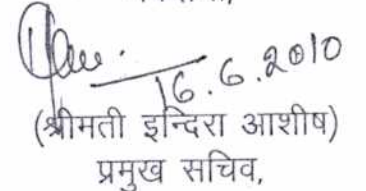 16.6.2010
(श्रीमती इन्दिरा आशीष)
प्रमुख सचिव,